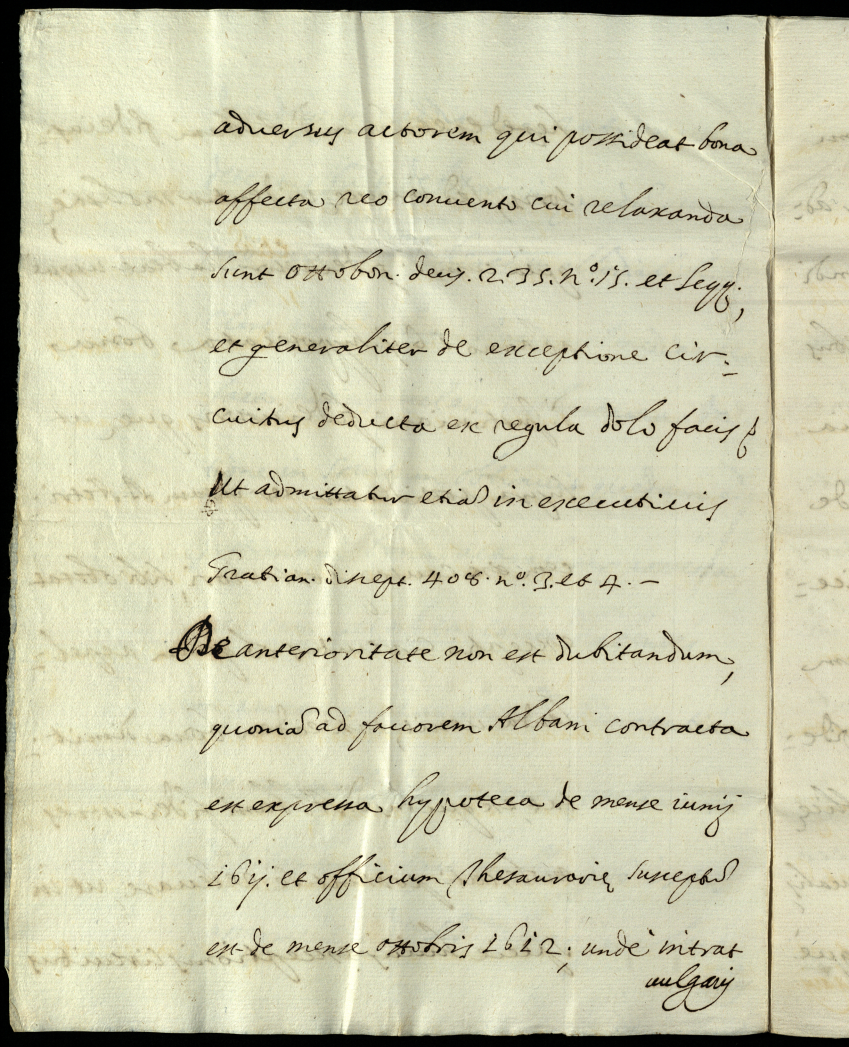 adversus actorem qui possideat bona
affecta reo convento cui relaxanda
sunt Ottobon. decis. 235. n.º 15. et seqq.,
et generaliter de exceptione cir=
cuitus deducta ex regula dolo facis
Ut admittatur etiã in executivis
Gratian. discept. 408. nº. 3. et 4. —
De anterioritate non est dubitandum,
quoniã ad favorem Albani contracta
est expressa hypoteca de mense iunij
et officium Thesaurarię susceptũ
est de mense ottobris 1612; unde intrat
vulgaris